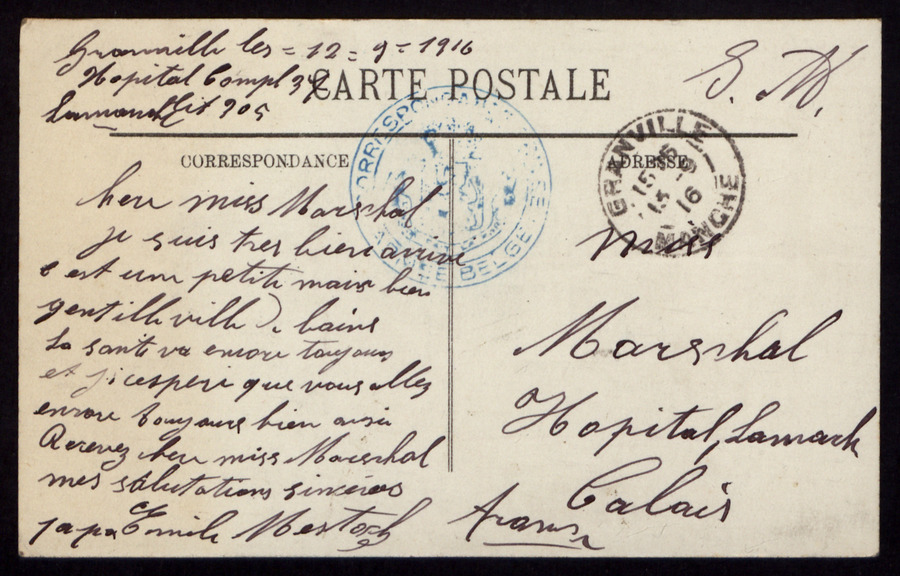 Granville les = 12 = 9 = 1916
Hopital Compl 39
Lit 905
S. M.
CARTE POSTALE
CORRESPONDANCE
ADRESSE
CORRESPONDANCE
BELGE
GRANVILLE
15 15
15 9
16
MANCHE
cherr miss Marschal
je suis tres bien arrive
c est une petite mais bien
gentille ville de bains
La sante va encore toujours
et j'cesperè que vous allez
encore toujours bien ausi
Recevez cherr miss Marschal
mes salutations sincères
papa Emile Mestoch
Miss
Marschal
Hopital, Lamark
Calais